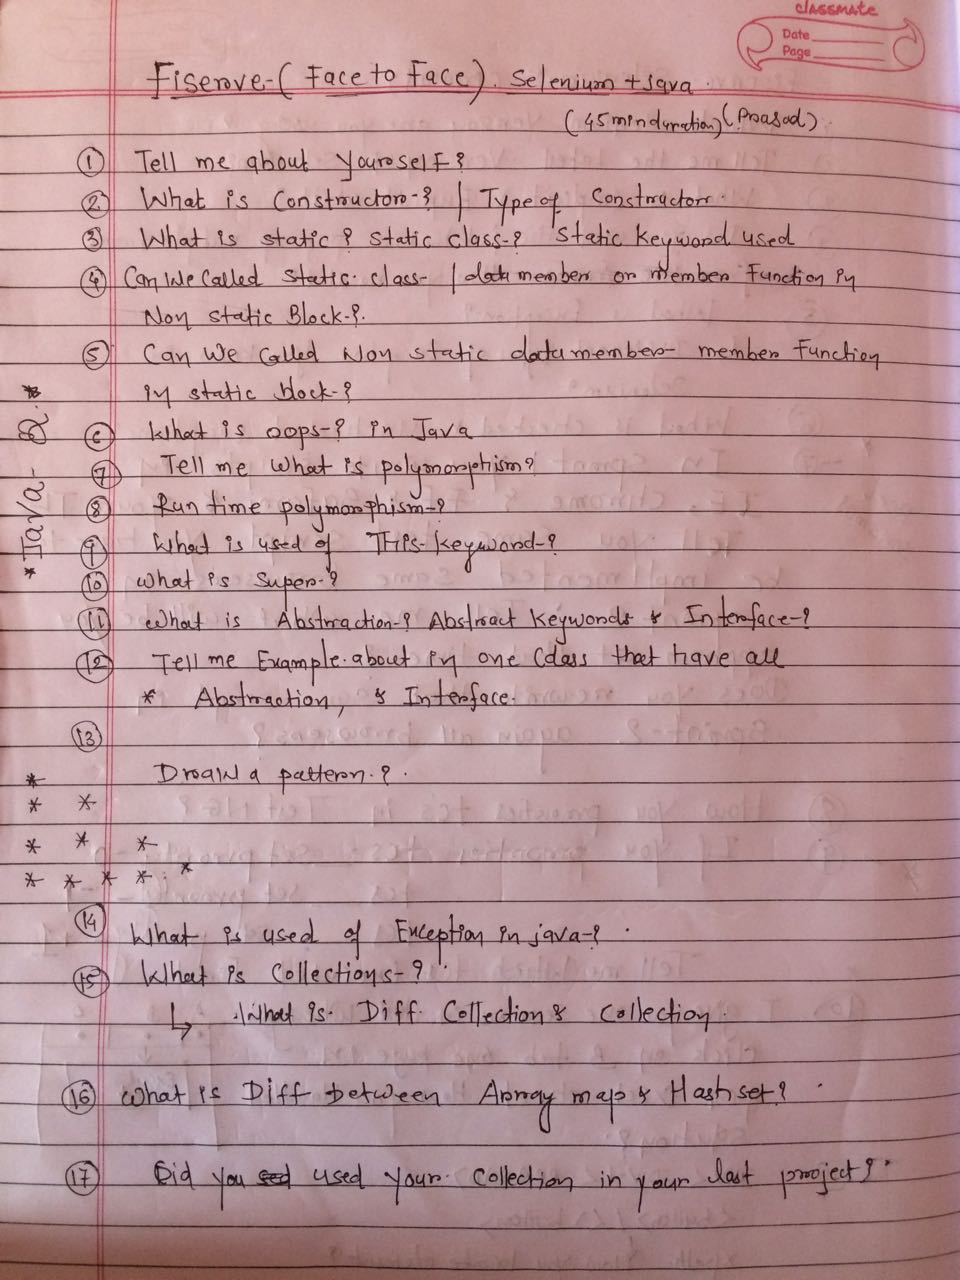 classmate
Date
Page
Fiserve-(Face to Face). Selenium + Java.
(45 min duration) (Prasad)
① Tell me about yourself?
② What is Constructor-? | Type of Constructor.
③ What is static? static class-? static keyword used
④ Can We Called Static. class- | data member or member Function in
Non static Block-?.
⑤ Can We Called Non static data member- member Function
in static block-?
⑥ What is oops-? in Java
⑦ Tell me What is polymorphism?
⑧ Run time polymorphism-?
⑨ What is used of This-keyword-?
⑩ What is Super-?
⑪ What is Abstraction-? Abstract keywords & Interface-?
⑫ Tell me Example.about in one Class that have all
* Abstraction, & Interface.
⑬
Draw a pattern.?.
*
* *
* * *
* * * * *
⑭ What is used of Exception in java-?
⑮ What is Collections-?
↳ What is. Diff. Collection & Collection.
⑯ What is Diff between Array map & Hashset?
⑰ Did you used your. Collection in your last project?
*Java- Q.*